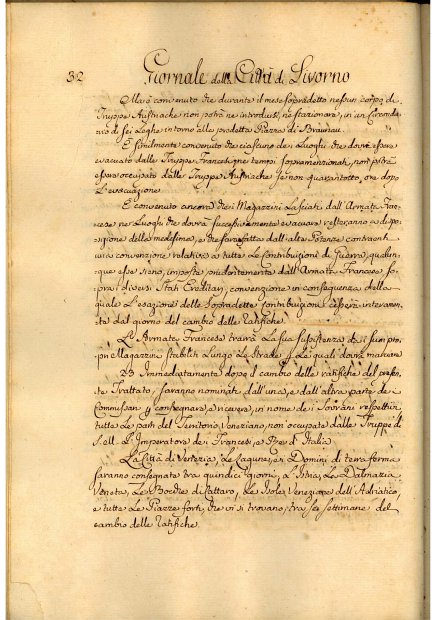 32 Giornale della Città di Livorno
Ma è convenuto che durante il mese sopradetto nessun corpo di
Truppe Austriache non potrà ne introdursi, ne stazionare, in un Circonda-
rio di sei Leghe intorno alla predetta Piazza di Braunau.
È similmente convenuto che ciascuno de i Luoghi che dovrà essere
evacuato dalle Truppe Francesi nei tempi sopramenzionati, non potrà
essere occupato dalle Truppe Austriache se non quarantotto ore dopo
L'evacuazione
È convenuto ancora che i Magazzini Lasciati dall'Armata Fran-
cese ne Luoghi che dovrà successivamente evacuare resteranno a dispo-
sizione della medesima, e che sarà fatta dall'alte Potenze contraenti
una convenzione relativa a tutte Le Contribuzioni di Guerra qualun-
que esse siano, imposte precedentemente dall'Armata Francese so-
pra i diversi Stati Ereditarj, convenzione in conseguenza della
quale L'esazione delle Sopradette contribuzioni cesserà interamen-
te dal giorno del cambio delle Ratifiche.
L'Armata Francese trarrà La sua sussistenza da i suoi pro-
pri Magazzini stabiliti Lungo Le strade p Le quali dovrà marciare
23 Immediatamente dopo il cambio delle ratifiche del presen-
te Trattato, saranno nominati dall'una, e dall'altra parte de i
Commissari p consegnare, e ricevere, in nome de i Sovrani respettivi
tutte Le parti del Territorio Veneziano, non occupate dalle Truppe di
S. M. L'Imperatore de i Francesi, e Rè d'Italia
La Città di Venezia, Le Lagune, e i Domini di terra ferma
saranno consegnati tra quindici giorni, L'Istria, La Dalmazia
Veneta, Le Bocche di Cattaro, Le Isole Veneziane dell'Adriatico,
e tutte Le Piazze forti, che vi si trovano, tra sei settimane del
cambio delle Ratifiche.